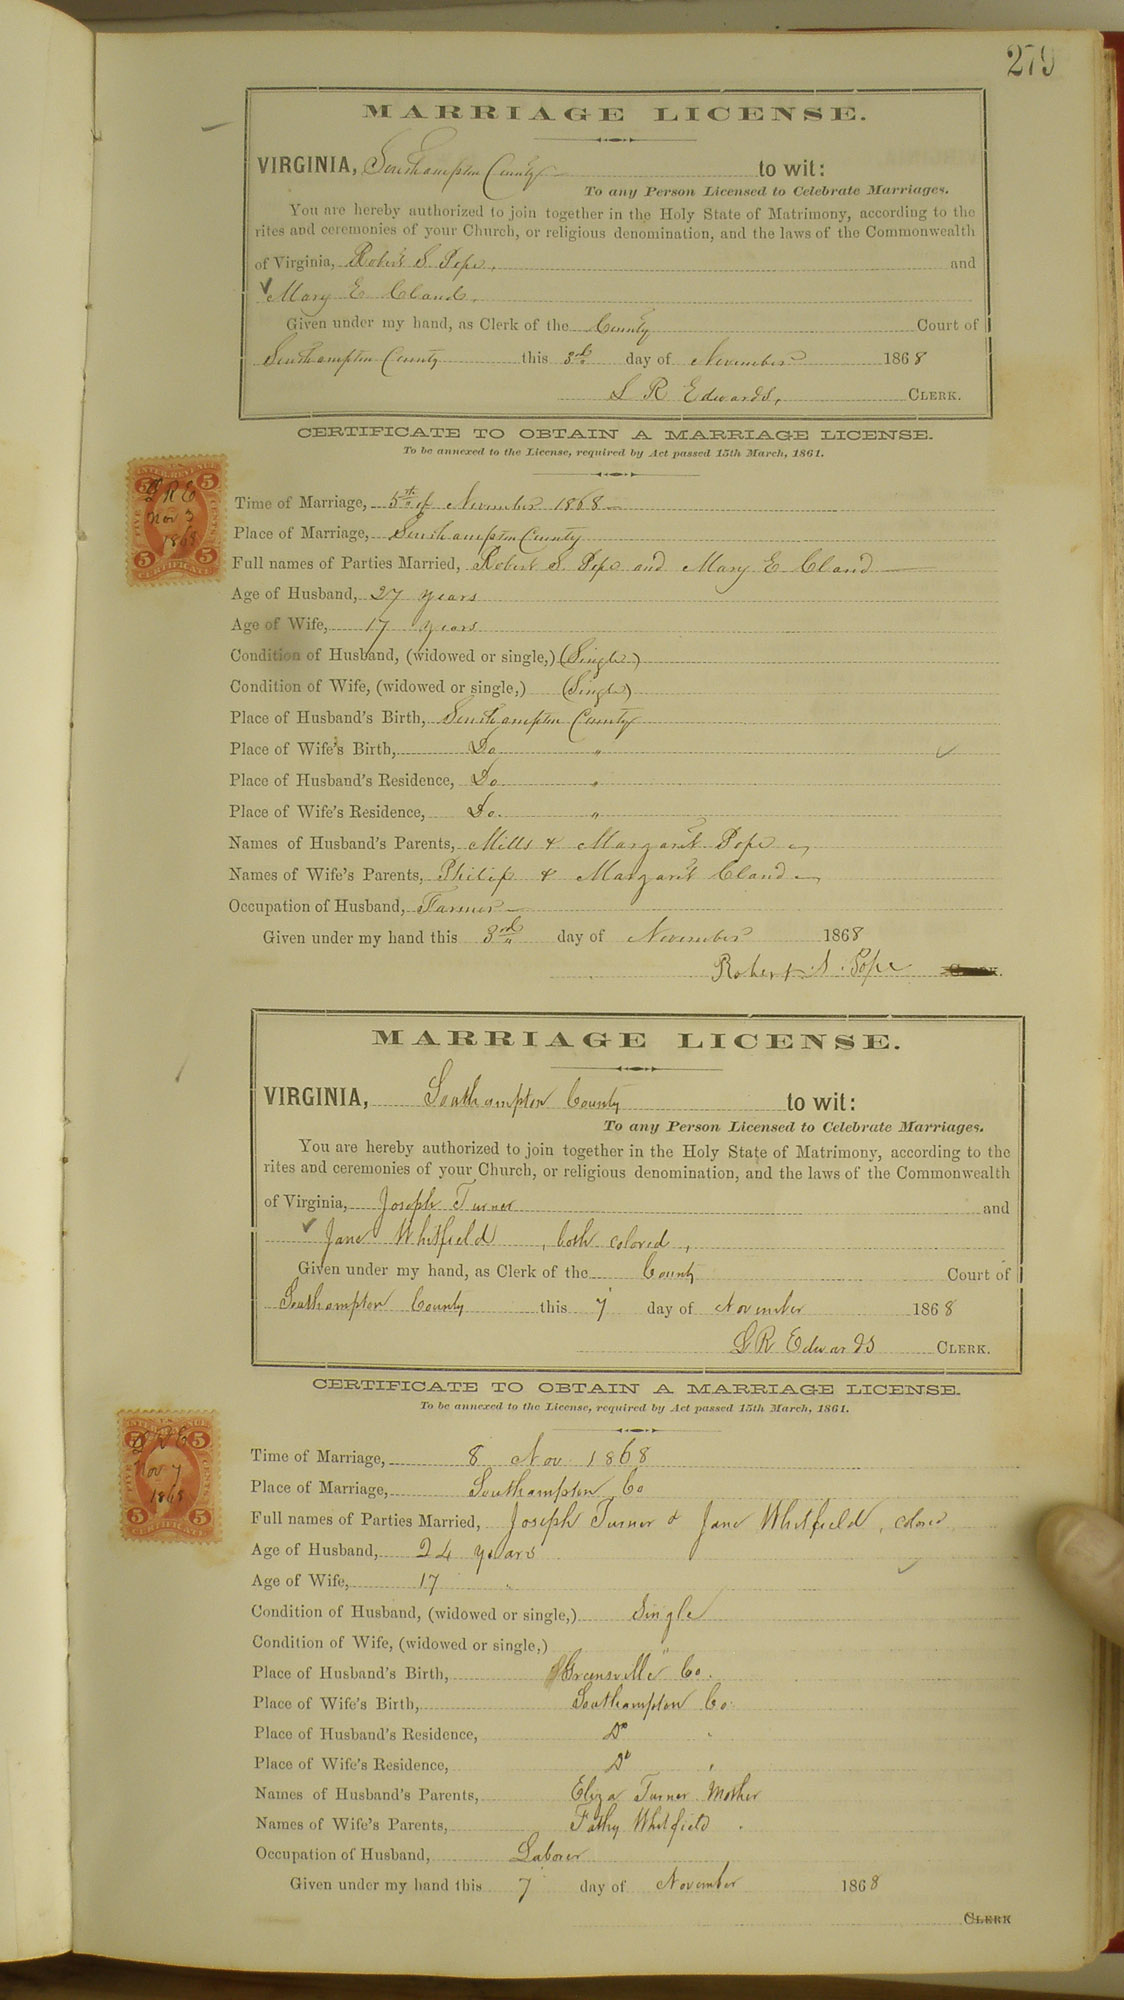 279
MARRIAGE LICENSE.
VIRGINIA, Southampton County to wit:
To any Person Licensed to Celebrate Marriages.
You are hereby authorized to join together in the Holy State of Matrimony, according to the
rites and ceremonies of your Church, or religious denomination, and the laws of the Commonwealth
of Virginia, Robert S. Pope, and
Mary E Claud.
Given under my hand, as Clerk of the County Court of
Southampton County this 3rd day of November 1868
L R Edwards, CLERK.
CERTIFICATE TO OBTAIN A MARRIAGE LICENSE.
To be annexed to the License, required by Act passed 15th March, 1861.
INTER. REVENUE
5 5
L R E
Nov 3
1868
FIVE CENTS
5 5
CERTIFICATE
Time of Marriage, 5th of November 1868
Place of Marriage, Southampton County
Full names of Parties Married, Robert S. Pope and Mary E Claud
Age of Husband, 27 years
Age of Wife, 17 years
Condition of Husband, (widowed or single,) (Single)
Condition of Wife, (widowed or single,) (Single)
Place of Husband's Birth, Southampton County
Place of Wife's Birth, Do "
Place of Husband's Residence, Do "
Place of Wife's Residence, Do. "
Names of Husband's Parents, Mills & Margaret Pope
Names of Wife's Parents, Philip & Margaret Claud
Occupation of Husband, Farmer
Given under my hand this 3rd day of November 1868
Robert S. Pope CLERK.
MARRIAGE LICENSE.
VIRGINIA, Southampton County to wit:
To any Person Licensed to Celebrate Marriages.
You are hereby authorized to join together in the Holy State of Matrimony, according to the
rites and ceremonies of your Church, or religious denomination, and the laws of the Commonwealth
of Virginia, Joseph Turner and
Jane Whitfield, both colored,
Given under my hand, as Clerk of the County Court of
Southampton County this 7 day of November 1868
L R Edwards CLERK.
CERTIFICATE TO OBTAIN A MARRIAGE LICENSE.
To be annexed to the License, required by Act passed 15th March, 1861.
INTER. REVENUE
5 5
L R E
Nov 7
1868
5 5
CERTIFICATE
Time of Marriage, 8 Nov 1868
Place of Marriage, Southampton Co
Full names of Parties Married, Joseph Turner & Jane Whitfield, colored
Age of Husband, 24 years
Age of Wife, 17 "
Condition of Husband, (widowed or single,) Single
Condition of Wife, (widowed or single,) "
Place of Husband's Birth, Greensville Co.
Place of Wife's Birth, Southampton Co.
Place of Husband's Residence, Do "
Place of Wife's Residence, Do "
Names of Husband's Parents, Eliza Turner Mother
Names of Wife's Parents, Fathy Whitfield "
Occupation of Husband, Laborer
Given under my hand this 7 day of November 1868
CLERK